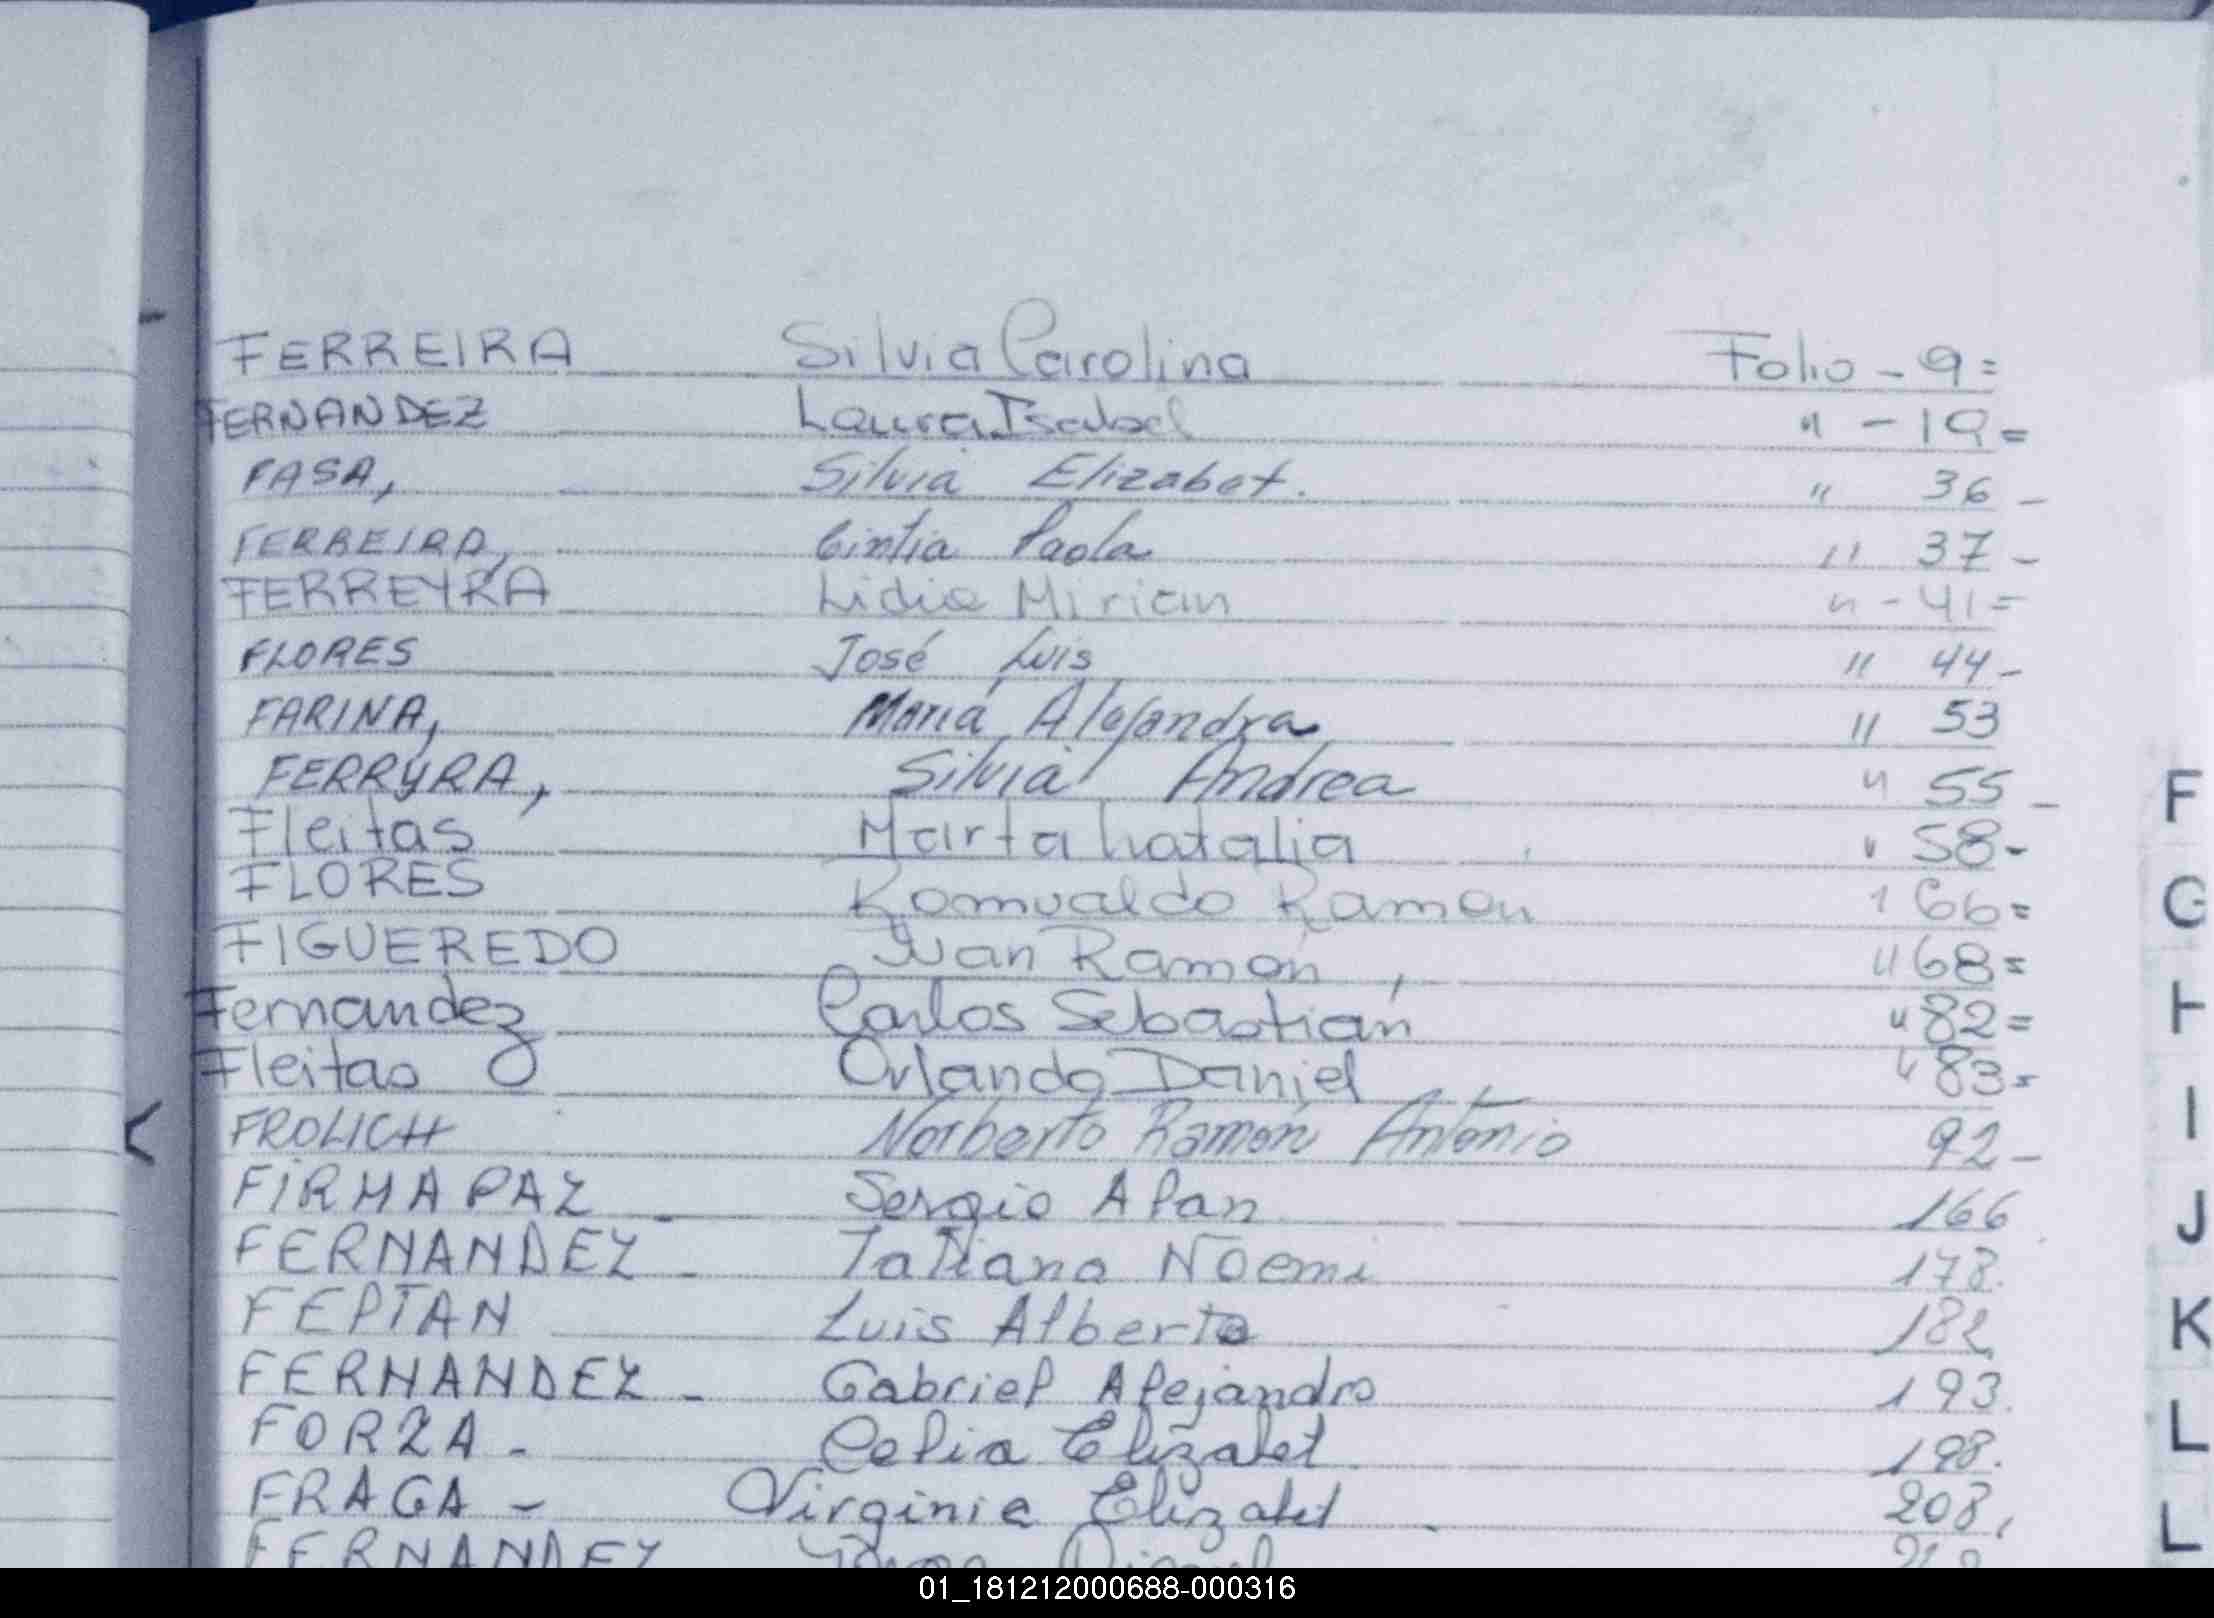 FERREIRA Silvia Carolina Folio - 9=
FERNANDEZ Laura Isabel " - 19=
FASA, Silvia Elizabet. " 36 -
FERREIRA, Cintia Paola " 37 -
FERREYRA Lidia Mirian " - 41=
FLORES José Luis " 44 -
FARINA, María Alejandra " 53
FERRYRA, Silvia Andrea " 55 -
Fleitas Marta Natalia " 58 -
FLORES Romualdo Ramon " 66=
FIGUEREDO Juan Ramón, " 68=
Fernandez Carlos Sebastián " 82=
Fleitas Orlando Daniel " 83=
FROLICH Norberto Ramón Antonio 92 -
FIRMAPAZ - Sergio Alan 166
FERNANDEZ - Tatiana Noemi 178.
FEPTAN Luis Alberto 182
FERNANDEZ - Gabriel Alejandro 193.
FORZA - Celia Elizabet 198.
FRAGA - Virginia Elizabet 208,
FERNANDEZ
F
G
H
I
J
K
L
L
01_181212000688-000316